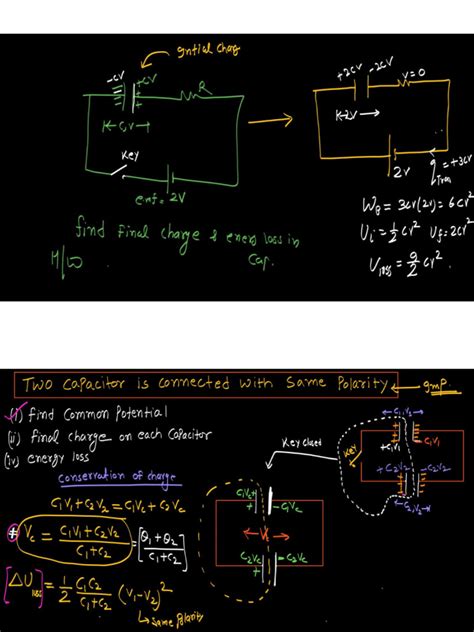 gntial charg
-CV +CV
R
K CV →
Key
emf = 2V
find Final charge & energy loss in Cap.
H/W
+2CV -2CV
V=0
K 2V →
2V
q = +3CV
Tran
W_B = 3CV(2V) = 6CV²
U_i = 1/2 CV² U_f = 2CV²
U_loss = 9/2 CV²
Two capacitor is connected with Same Polarity ← gmp.
(i) Find Common Potential
(ii) Final charge on each Capacitor
(iv) energy loss
Conservation of charge
C₁V₁ + C₂V₂ = C₁Vc + C₂Vc
# Vc = C₁V₁ + C₂V₂ / C₁ + C₂ = [Q₁ + Q₂ / C₁ + C₂]
[ΔU loss] = 1/2 C₁C₂ / C₁ + C₂ (V₁ - V₂)²
↳ Same Polarity
Key closed
C₁Vc+ -C₁Vc
← Vc →
C₂Vc + -C₂Vc
Key
+C₁V₁ -C₁V₁
+C₂V₂ -C₂V₂